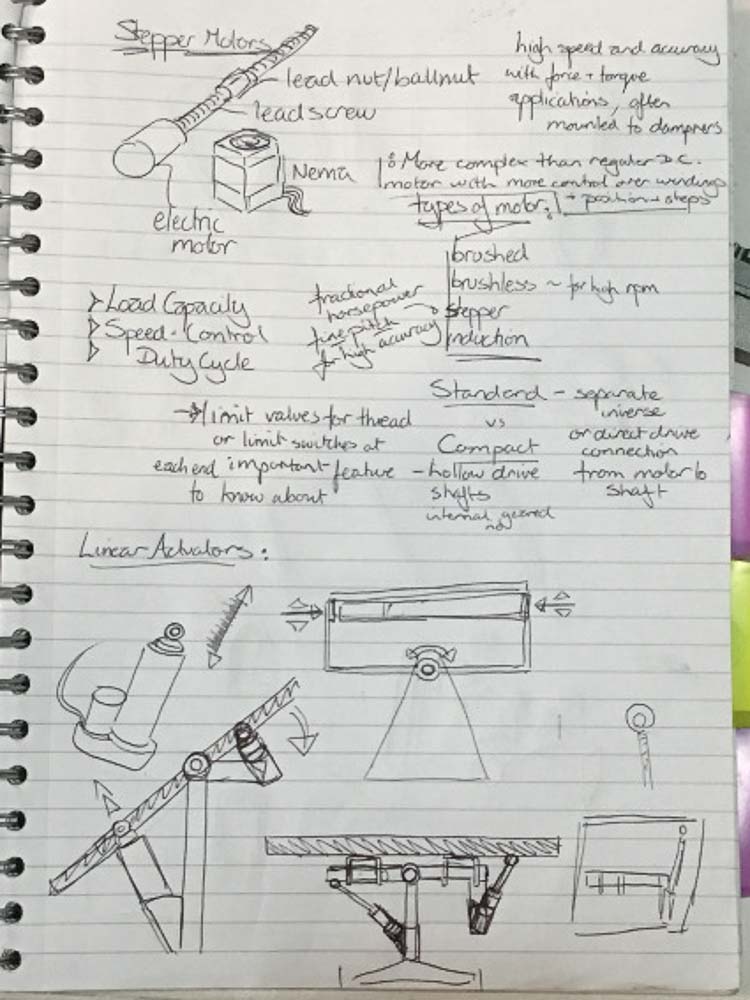 Stepper Motors
lead nut/ballnut
leadscrew
Nema
electric
motor
high speed and accuracy
with force + torque
applications, often
mounted to dampners
: More complex than regular D.C.
motor with more control over windings
+ position + steps
types of motor:
brushed
brushless ~ for high rpm
stepper
induction
fractional
horsepower
fine pitch
for high accuracy
Load Capacity
Speed - Control
Duty Cycle
limit values for thread
or limit switches at
each end important feature
to know about
Standard - separate
inverse
or direct drive
connection
from motor to
shaft
vs
Compact
- hollow drive
shafts
internal geared
Linear Actuators: